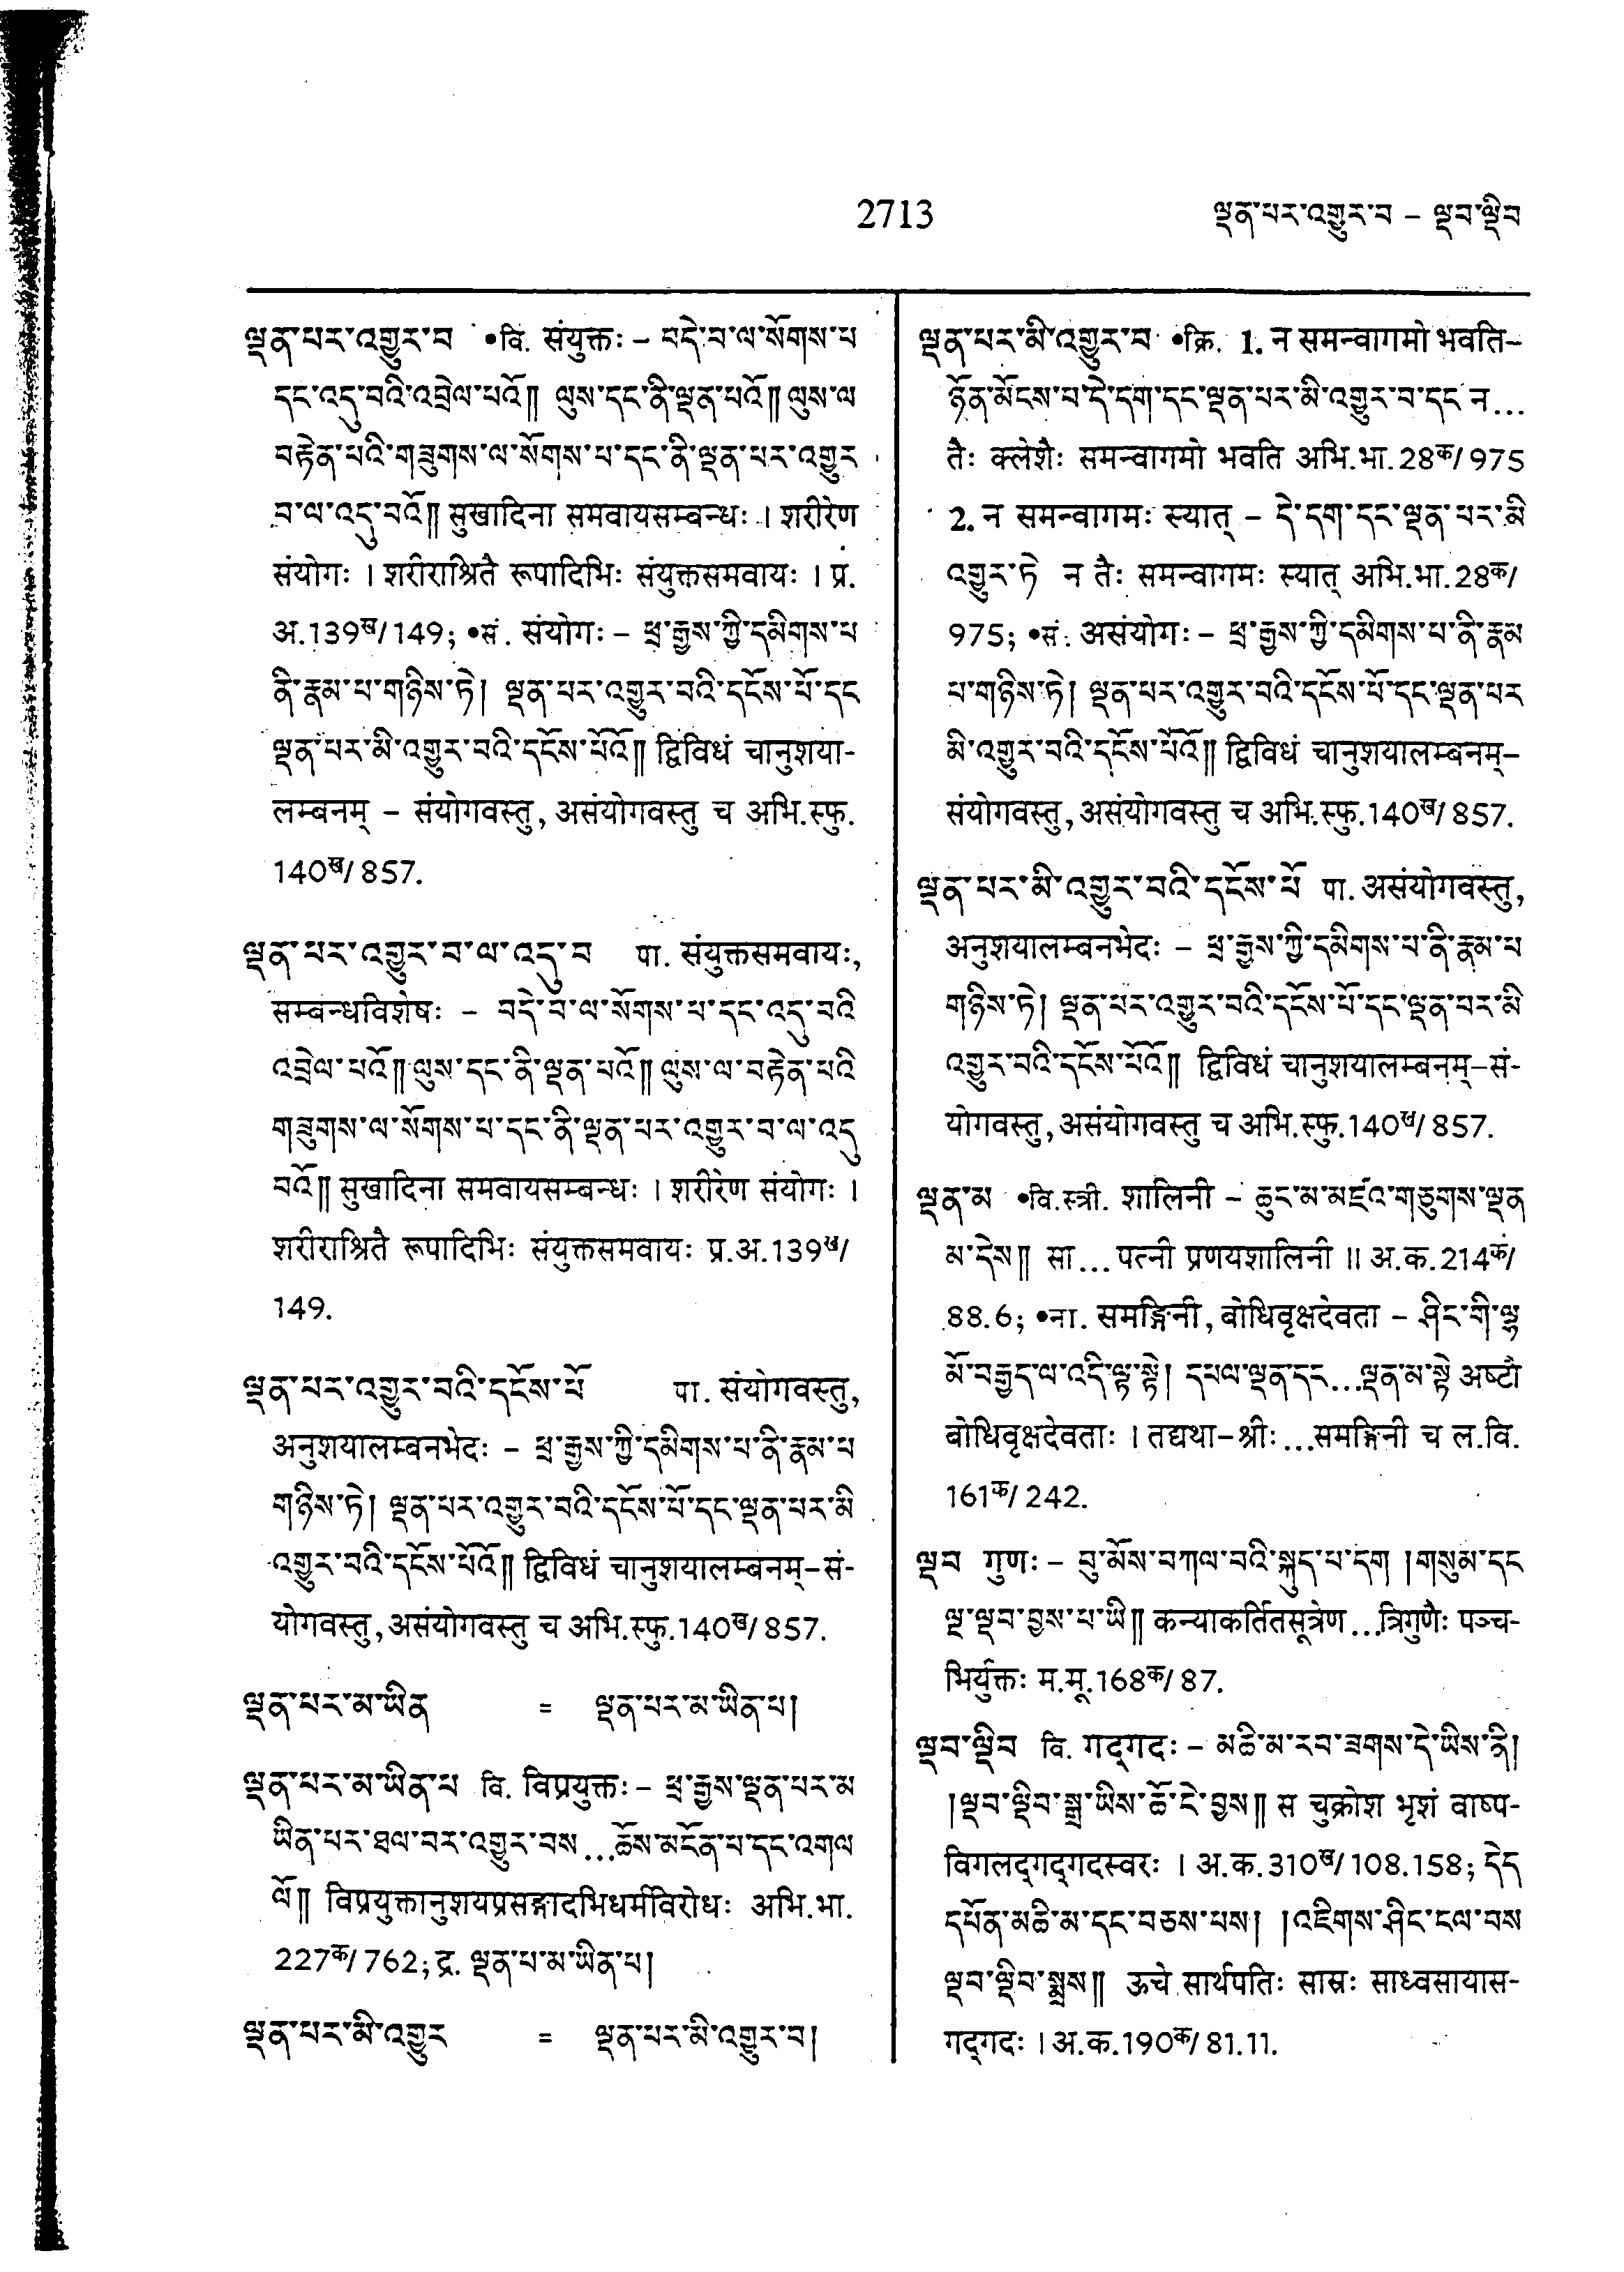 2713
ལྡན་པར་འགྱུར་བ – ལྡབ་ལྡིབ
ལྡན་པར་འགྱུར་བ •वि. संयुक्तः – བདེ་བ་ལ་སོགས་པ
དང་འདུ་བའི་འབྲེལ་པའོ༎ ལུས་དང་ནི་ལྡན་པའོ༎ ལུས་ལ
བརྟེན་པའི་གཟུགས་ལ་སོགས་པ་དང་ནི་ལྡན་པར་འགྱུར
བ་ལ་འདུ་བའོ༎ सुखादिना समवायसम्बन्धः । शरीरेण
संयोगः । शरीराश्रितै रूपादिभिः संयुक्तसमवायः । प्र.
अ.139ख/149; •सं. संयोगः – ཕྲ་རྒྱས་ཀྱི་དམིགས་པ
ནི་རྣམ་པ་གཉིས་ཏེ། ལྡན་པར་འགྱུར་བའི་དངོས་པོ་དང
ལྡན་པར་མི་འགྱུར་བའི་དངོས་པོའོ༎ द्विविधं चानुशया-
लम्बनम् – संयोगवस्तु, असंयोगवस्तु च अभि.स्फु.
140ख/857.
ལྡན་པར་འགྱུར་བ་ལ་འདུ་བ पा. संयुक्तसमवायः,
सम्बन्धविशेषः – བདེ་བ་ལ་སོགས་པ་དང་འདུ་བའི
འབྲེལ་པའོ༎ ལུས་དང་ནི་ལྡན་པའོ༎ ལུས་ལ་བརྟེན་པའི
གཟུགས་ལ་སོགས་པ་དང་ནི་ལྡན་པར་འགྱུར་བ་ལ་འདུ
བའོ༎ सुखादिना समवायसम्बन्धः । शरीरेण संयोगः ।
शरीराश्रितै रूपादिभिः संयुक्तसमवायः प्र.अ.139ख/
149.
ལྡན་པར་འགྱུར་བའི་དངོས་པོ पा. संयोगवस्तु,
अनुशयालम्बनभेदः – ཕྲ་རྒྱས་ཀྱི་དམིགས་པ་ནི་རྣམ་པ
གཉིས་ཏེ། ལྡན་པར་འགྱུར་བའི་དངོས་པོ་དང་ལྡན་པར་མི
འགྱུར་བའི་དངོས་པོའོ༎ द्विविधं चानुशयालम्बनम्–सं-
योगवस्तु, असंयोगवस्तु च अभि.स्फु.140ख/857.
ལྡན་པར་མ་ཡིན = ལྡན་པར་མ་ཡིན་པ།
ལྡན་པར་མ་ཡིན་པ वि. विप्रयुक्तः – ཕྲ་རྒྱས་ལྡན་པར་མ
ཡིན་པར་ཐལ་བར་འགྱུར་བས...ཆོས་མངོན་པ་དང་འགལ
ལོ༎ विप्रयुक्तानुशयप्रसङ्गादभिधर्मविरोधः अभि.भा.
227क/762; द्र. ལྡན་པ་མ་ཡིན་པ།
ལྡན་པར་མི་འགྱུར = ལྡན་པར་མི་འགྱུར་བ།
ལྡན་པར་མི་འགྱུར་བ •क्रि. 1. न समन्वागमो भवति–
ཉོན་མོངས་པ་དེ་དག་དང་ལྡན་པར་མི་འགྱུར་བ་དང न...
तैः क्लेशैः समन्वागमो भवति अभि.भा.28क/975
2. न समन्वागमः स्यात् – དེ་དག་དང་ལྡན་པར་མི
འགྱུར་ཏེ न तैः समन्वागमः स्यात् अभि.भा.28क/
975; •सं. असंयोगः – ཕྲ་རྒྱས་ཀྱི་དམིགས་པ་ནི་རྣམ
པ་གཉིས་ཏེ། ལྡན་པར་འགྱུར་བའི་དངོས་པོ་དང་ལྡན་པར
མི་འགྱུར་བའི་དངོས་པོའོ༎ द्विविधं चानुशयालम्बनम्–
संयोगवस्तु, असंयोगवस्तु च अभि.स्फु.140ख/857.
ལྡན་པར་མི་འགྱུར་བའི་དངོས་པོ पा. असंयोगवस्तु,
अनुशयालम्बनभेदः – ཕྲ་རྒྱས་ཀྱི་དམིགས་པ་ནི་རྣམ་པ
གཉིས་ཏེ། ལྡན་པར་འགྱུར་བའི་དངོས་པོ་དང་ལྡན་པར་མི
འགྱུར་བའི་དངོས་པོའོ༎ द्विविधं चानुशयालम्बनम्–सं-
योगवस्तु, असंयोगवस्तु च अभि.स्फु.140ख/857.
ལྡན་མ •वि.स्त्री. शालिनी – ཆུང་མ་མཛའ་གཅུགས་ལྡན
མ་དེས༎ सा...पत्नी प्रणयशालिनी ॥ अ.क.214क/
88.6; •ना. समङ्गिनी, बोधिवृक्षदेवता – ཤིང་གི་ལྷ
མོ་བརྒྱད་ལ་འདི་ལྟ་སྟེ། དཔལ་ལྡན་དང...ལྡན་མ་སྟེ अष्टौ
बोधिवृक्षदेवताः । तद्यथा–श्रीः...समङ्गिनी च ल.वि.
161क/242.
ལྡབ गुणः – བུ་མོས་བཀལ་བའི་སྐུད་པ་དག །གསུམ་དང
ལྔ་ལྡབ་བྱས་པ་ཡི༎ कन्याकर्तितसूत्रेण...त्रिगुणैः पञ्च-
भिर्युक्तः म.मू.168क/87.
ལྡབ་ལྡིབ वि. गद्गदः – མཆི་མ་རབ་ཟགས་དེ་ཡིས་ནི།
།ལྡབ་ལྡིབ་སྒྲ་ཡིས་ཆོ་ངེ་བྱས༎ स चुक्रोश भृशं वाष्प-
विगलद्गद्गदस्वरः । अ.क.310ख/108.158; དེད
དཔོན་མཆི་མ་དང་བཅས་པས། །འཇིགས་ཤིང་ངལ་བས
ལྡབ་ལྡིབ་སྨྲས༎ ऊचे सार्थपतिः सास्रः साध्वसायास-
गद्गदः । अ.क.190क/81.11.